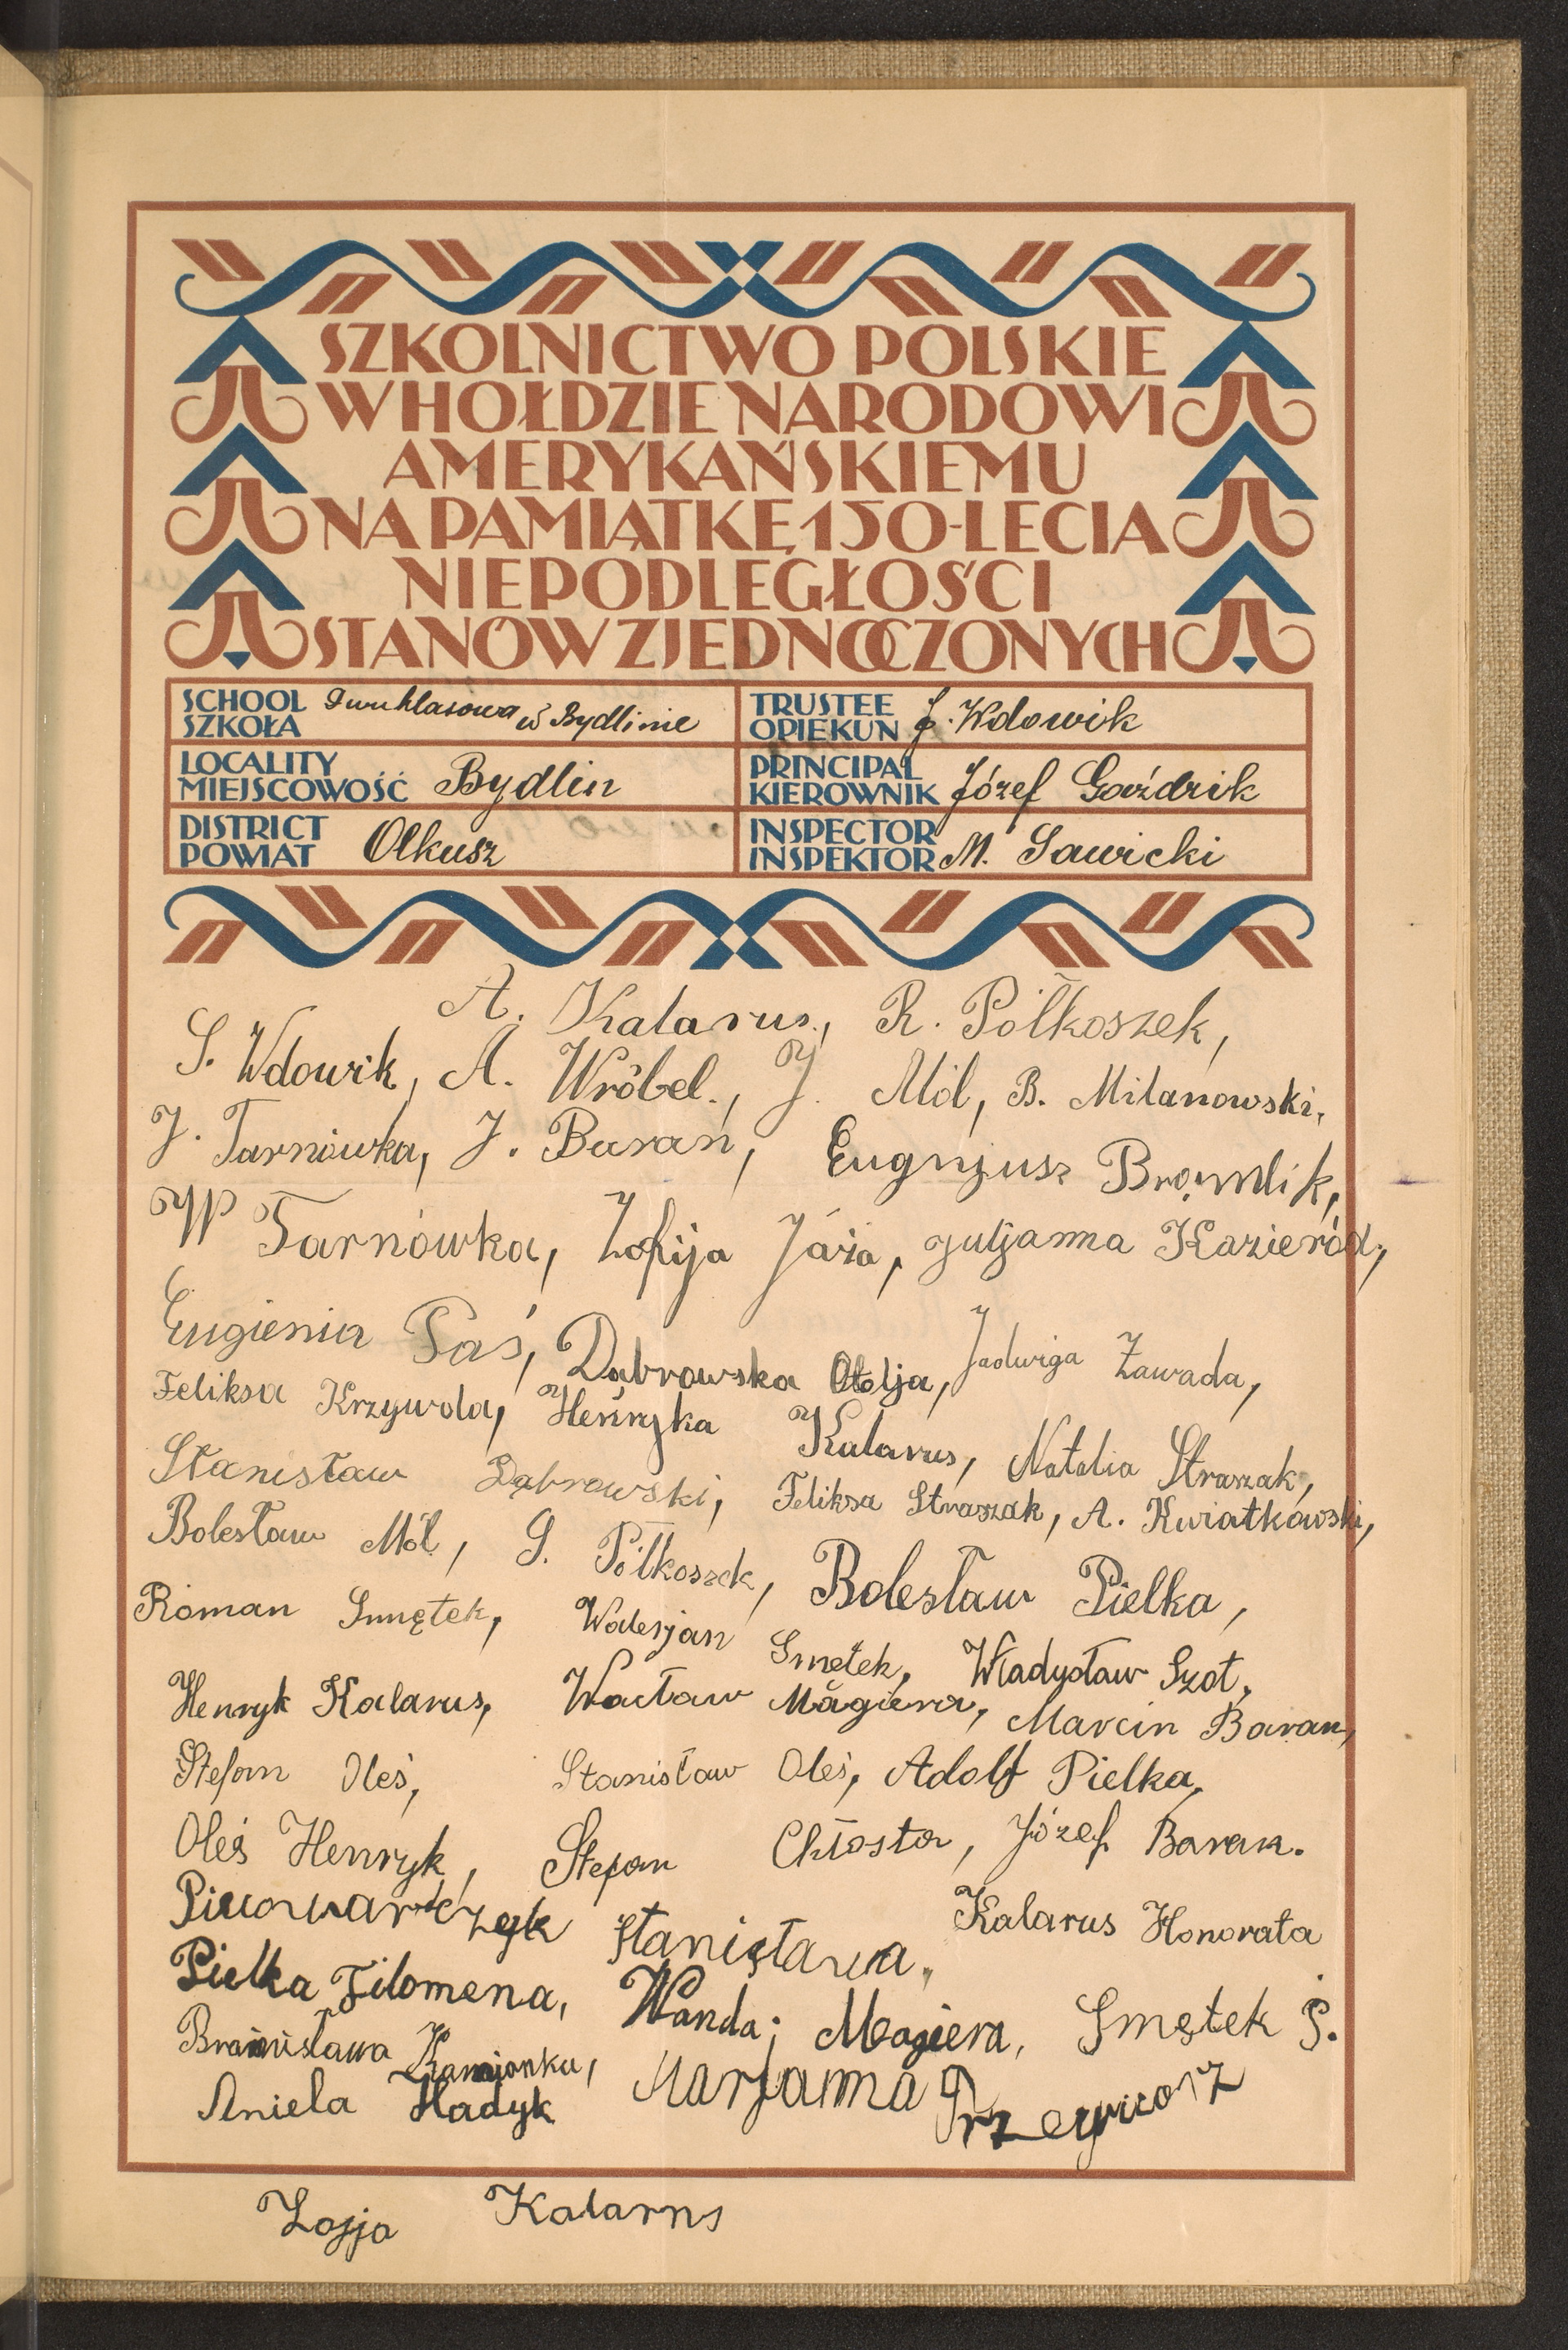 SZKOLNICTWO POLSKIE
W HOŁDZIE NARODOWI
AMERYKAŃSKIEMU
NA PAMIĄTKĘ 150-LECIA
NIEPODLEGŁOŚCI
STANÓW ZJEDNOCZONYCH
SCHOOL
SZKOŁA
Dwuklasowa w Bydlinie
TRUSTEE
OPIEKUN
J. Wdowik
LOCALITY
MIEJSCOWOŚĆ
Bydlin
PRINCIPAL
KIEROWNIK
Józef Goździk
DISTRICT
POWIAT
Olkusz
INSPECTOR
INSPEKTOR
M. Sawicki
A. Kalarus, R. Półkoszek,
S. Wdowik, A. Wróbel., J. Mól, B. Milanowski,
J. Tarnówka, J. Baran, Eugnjusz
W Tarnówka, Zofija Jáża, Juljanna Kazieród,
Eugienia Paś, Dąbrowska Otolja, Jadwiga Zawada,
Feliksa Krzywda, Henryka Kalarus, Natalia Straszak,
Stanisław Dąbrowski, Feliksa Straszak, A. Kwiatkowski,
Bolesław Mól, G. Półkoszek, Bolesław Pielka,
Roman Smętek, Walerjan Smętek, Władysław Szot,
Henryk Kalarus, Wacław Magiera, Marcin Baran,
Stefan Oleś, Stanisław Oleś, Adolf Pielka,
Oleś Henryk, Stefan Chłosta, Józef Baran.
Piwowarczyk Stanisława, Kalarus Honorata
Pielka Filomena, Wanda; Magiera, Smętek S.
Bronisława Kamionka, Marjanna
Aniela Hadyk
Zofja Kalarus